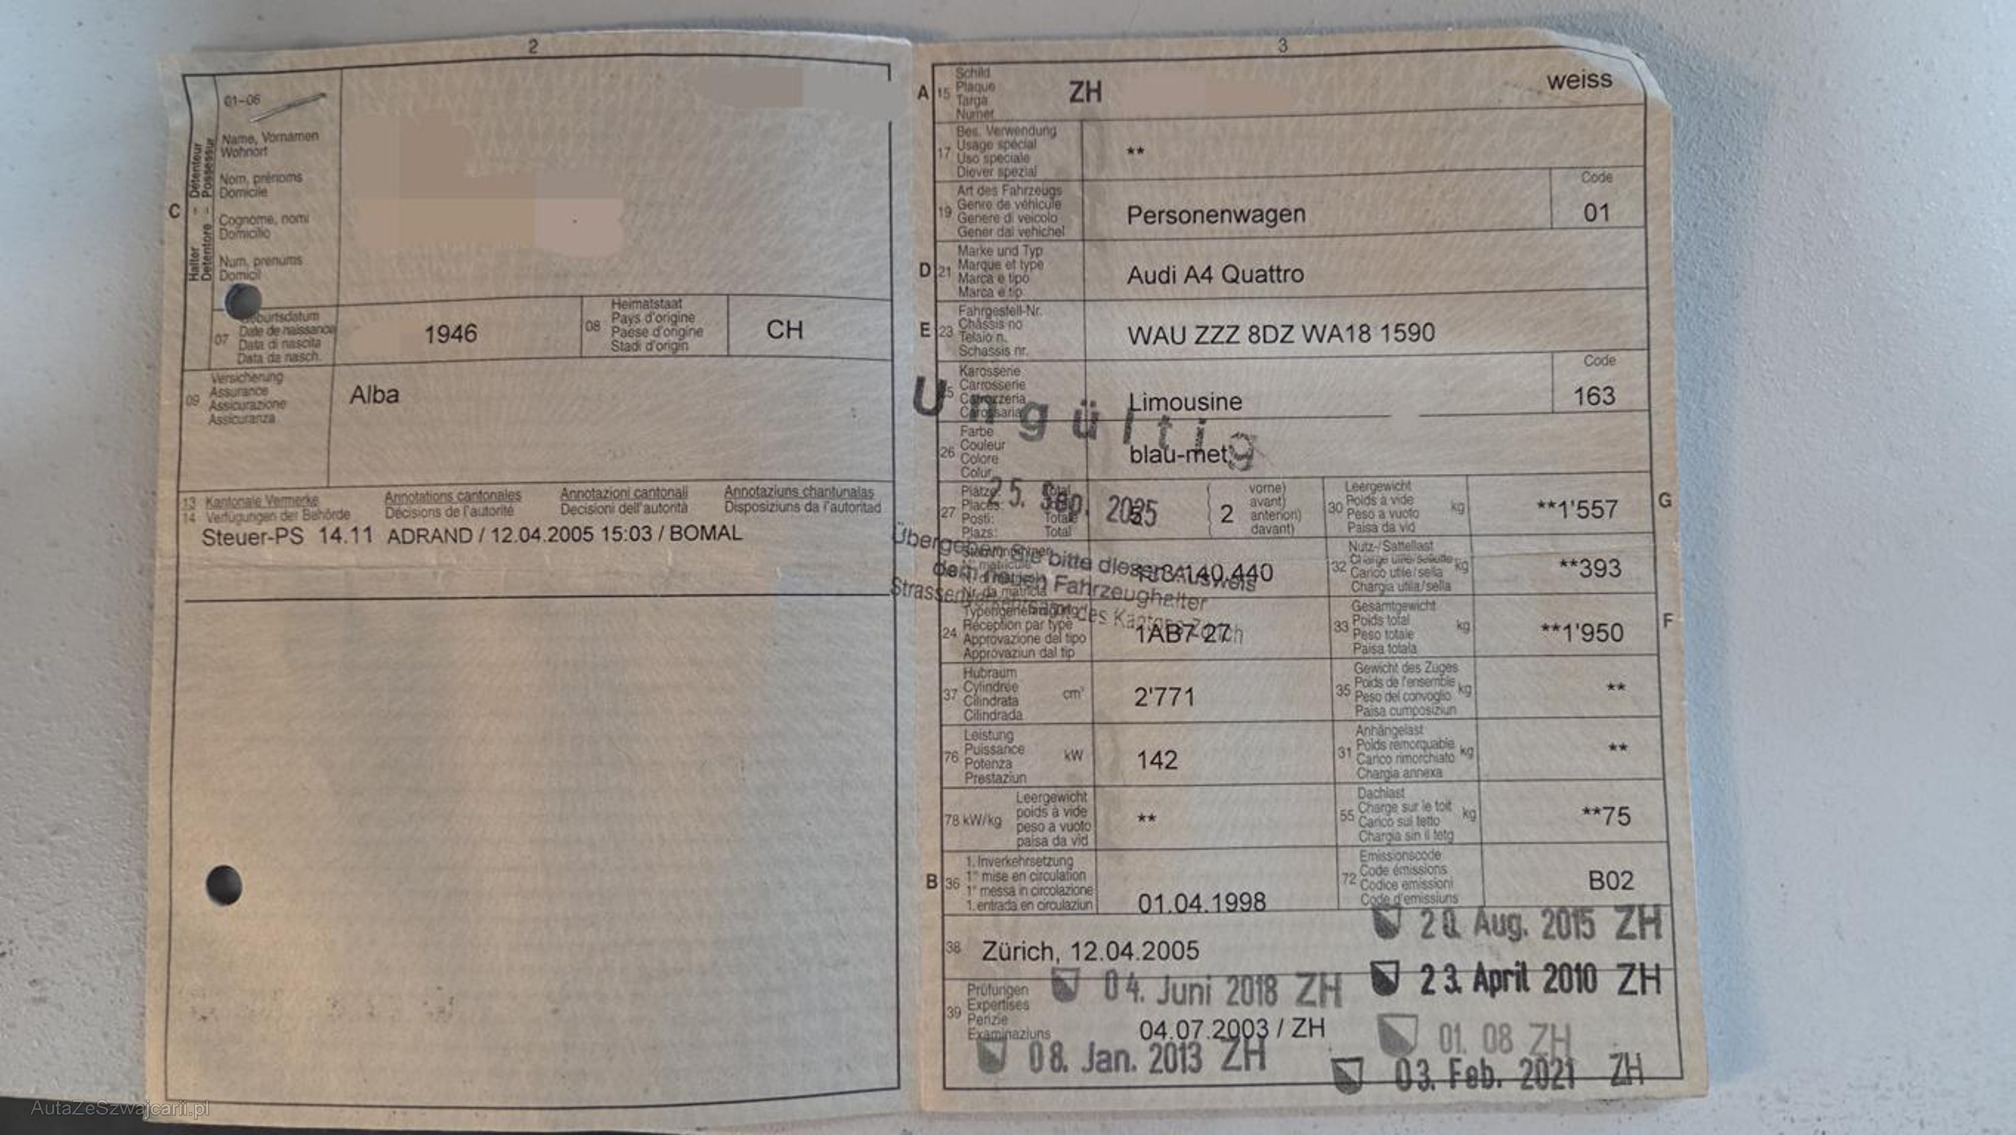 2
01-06
Name, Vornamen
Wohnort
Nom, prénoms
Domicile
Cognome, nomi
Domicilio
Num, prenums
Domicil
C
Halter - Détenteur
Detentore - Possessur
07
Geburtsdatum
Date de naissance
Data di nascita
Data da nasch.
1946
08
Heimatstaat
Pays d'origine
Paese d'origine
Stadi d'origin
CH
09
Versicherung
Assurance
Assicurazione
Assicuranza
Alba
13 Kantonale Vermerke Annotations cantonales Annotazioni cantonali Annotaziuns chantunalas
14 Verfügungen der Behörde Décisions de l'autorité Decisioni dell'autorità Disposiziuns da l'autoritad
Steuer-PS 14.11 ADRAND / 12.04.2005 15:03 / BOMAL
3
A 15
Schild
Plaque
Targa
Numer
ZH
weiss
17
Bes. Verwendung
Usage spécial
Uso speciale
Diever spezial
**
19
Art des Fahrzeugs
Genre de véhicule
Genere di veicolo
Gener dal vehichel
Personenwagen
Code
01
D 21
Marke und Typ
Marque et type
Marca e tipo
Marca e tip
Audi A4 Quattro
E 23
Fahrgestell-Nr.
Châssis no
Telaio n.
Schassis nr.
WAU ZZZ 8DZ WA18 1590
25
Karosserie
Carrosserie
Carrozzeria
Carossaria
Limousine
Code
163
Ungültig
26
Farbe
Couleur
Colore
Colur
blau-met.
27
Plätze Total
Places: Total
Posti: Totale
Plazs: Total
25. Sep. 2025
2
vorne)
avant)
anteriori)
davant)
30
Leergewicht
Poids à vide
Peso a vuoto
Paisa da vid
kg
**1'557
G
Übergeben Sie bitte diesen Ausweis
dem neuen Fahrzeughalter
Strassen
des Kantons Zürich
140.440
32
Nutz-/Sattellast
Charge utile/sellette
Carico utile/sella
Chargia utila/sella
kg
**393
24
Typengenehmigung
Réception par type
Approvazione del tipo
Approvaziun dal tip
1AB7 27
33
Gesamtgewicht
Poids total
Peso totale
Paisa totala
kg
**1'950
F
37
Hubraum
Cylindrée
Cilindrata
Cilindrada
cm³
2'771
35
Gewicht des Zuges
Poids de l'ensemble
Peso del convoglio
Paisa cumposiziun
kg
**
76
Leistung
Puissance
Potenza
Prestaziun
kW
142
31
Anhängelast
Poids remorquable
Carico rimorchiato
Chargia annexa
kg
**
78 kW/kg
Leergewicht
poids à vide
peso a vuoto
paisa da vid
**
55
Dachlast
Charge sur le toit
Carico sul tetto
Chargia sin il tetg
kg
**75
B 36
1. Inverkehrsetzung
1re mise en circulation
1a messa in circolazione
1. entrada en circulaziun
01.04.1998
72
Emissionscode
Code émissions
Codice emissioni
Code d'emissiuns
B02
20. Aug. 2015 ZH
38
Zürich, 12.04.2005
04. Juni 2018 ZH
23. April 2010 ZH
39
Prüfungen
Expertises
Perizie
Examinaziuns
04.07.2003 / ZH
01. 08 ZH
08. Jan. 2013 ZH
03. Feb. 2021 ZH
AutaZeSzwajcarii.pl